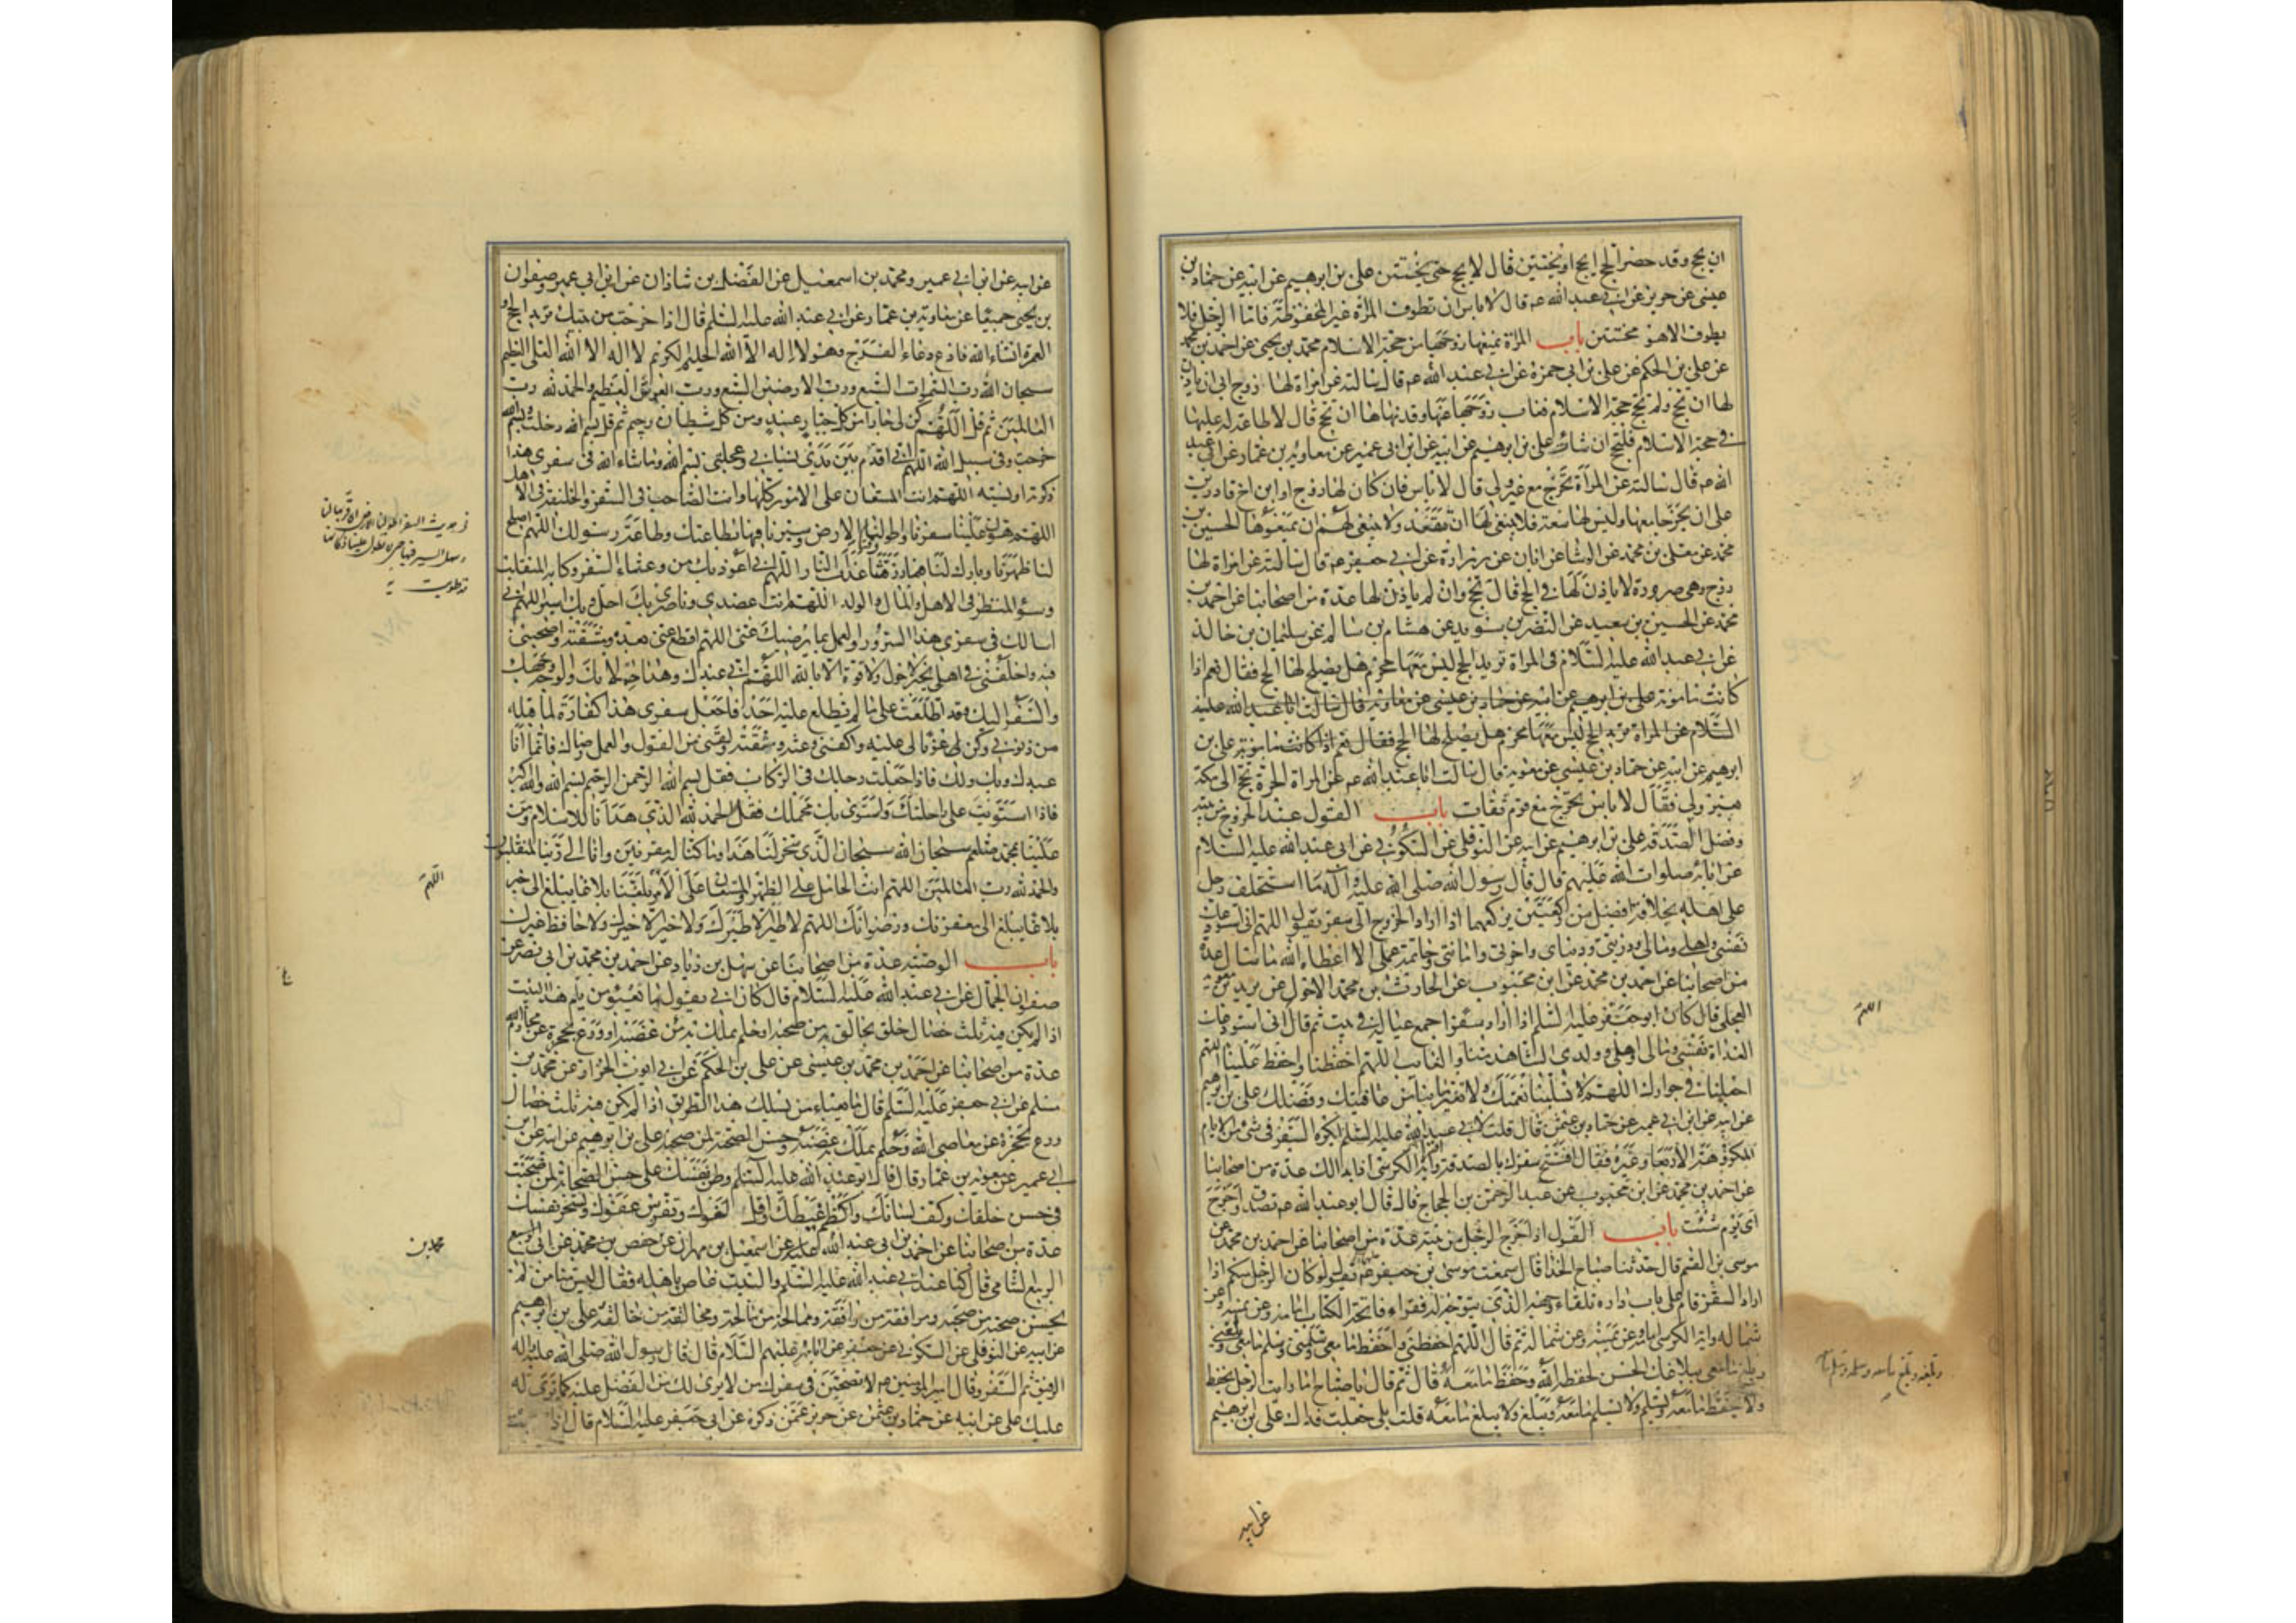 ان يحج وقد حضر الحج ايحج او يختتن قال لا يحج حتى يختتن علي بن ابرهيم عن ابيه عن حماد بن
عيسى عن حريز عن ابي عبد الله عم قال لا باس ان تطوف المراة غير المخفوظة فاما الرجل فلا
يطوف الا وهو مختتن باب المراة يمنعها زوجها من حجة الاسلام محمد بن يحيى عن احمد بن محمد
عن علي بن الحكم عن علي بن ابي حمزة عن ابي عبد الله عم قال سالته عن امراة لها زوج ابى ان ياذن
لها ان تحج ولم تحج حجة الاسلام فغاب زوجها عنها وقد نهاها ان تحج قال لا طاعة له عليها
في حجة الاسلام فلتحج ان شاءت علي بن ابرهيم عن ابيه عن ابن ابي عمير عن معاوية بن عمار عن ابي عبد
الله عم قال سالته عن المراة تخرج مع غير ولي قال لا باس فان كان لها زوج او ابن اخ قادرين
على ان يخرجا معها وليس لها سعة فلا ينبغي لها ان تقعد ولا ينبغي لهم ان يمنعوها الحسين بن
محمد عن معلى بن محمد عن الوشا عن ابان عن زرارة عن ابي جعفر عم قال سالته عن امراة لها
زوج وهي صرورة لا ياذن لها في الحج قال تحج وان لم ياذن لها عدة من اصحابنا عن احمد بن
محمد عن الحسين بن سعيد عن النضر بن سويد عن هشام بن سالم عن سليمان بن خالد
عن ابي عبد الله عليه السلام في المراة تريد الحج ليس معها محرم هل يصلح لها الحج فقال نعم اذا
كانت مامونة علي بن ابرهيم عن ابيه عن حماد بن عيسى عن معاوية قال سالت ابا عبد الله عليه
السلام عن المراة تريد الحج ليس معها محرم هل يصلح لها الحج فقال نعم اذا كانت مامونة علي بن
ابرهيم عن ابيه عن حماد بن عيسى عن معوية قال سالت ابا عبد الله عم عن المراة الحرة تحج الى مكة
بغير ولي فقال لا باس تخرج مع قوم ثقات باب القول عند الخروج من بيته
وفضل الصدقة علي بن ابرهيم عن ابيه عن النوفلي عن السكوني عن ابي عبد الله عليه السلام
عن ابائه صلوات الله عليهم قال قال رسول الله صلى الله عليه وآله ما استخلف رجل
على اهله بخلافة افضل من ركعتين يركعهما اذا اراد الخروج الى سفر يقول اللهم اني استودعك
نفسي واهلي ومالي وذريتي ودنياي واخرتي وامانتي وخاتمة عملي الا اعطاه الله ما سال عدة
من اصحابنا عن احمد بن محمد عن ابن محبوب عن الحارث بن محمد الاحول عن بريد بن معوية
العجلي قال كان ابو جعفر عليه السلم اذا اراد سفرا جمع عياله في بيت ثم قال اني استودعك
الغداة نفسي ومالي واهلي وولدي الشاهد منا والغائب اللهم احفظنا واحفظ علينا اللهم
اجعلنا في جوارك اللهم لا تسلبنا نعمتك ولا تغير ما بنا من عافيتك وفضلك علي بن ابرهيم
عن ابيه عن ابن ابي عمير عن حماد بن عثمن قال قلت لابي عبد الله عليه السلم ايكره السفر في شيء من الايام
المكروهة الاربعا وغيره فقال افتتح سفرك بالصدقة واقرا آية الكرسي اذا بدا لك عدة من اصحابنا
عن احمد بن محمد عن ابن محبوب عن عبد الرحمن بن الحجاج قال قال ابو عبد الله عم تصدق واخرج
اي يوم شئت باب القول اذا خرج الرجل من بيته عدة من اصحابنا عن احمد بن محمد عن
موسى بن القسم قال حدثنا صباح الحذا قال سمعت موسى بن جعفر عم يقول لو كان الرجل منكم اذا
اراد السفر قام على باب داره تلقاء وجهه الذي يتوجه له فقراء فاتحة الكتاب امامه وعن يمينه وعن
شماله واية الكرسي امامه وعن يمينه وعن شماله ثم قال اللهم احفظني واحفظ ما معي وسلمني وسلم ما معي وبلغني
وبلغ ما معي ببلاغك الحسن لحفظه الله وحفظ ما معه قال ثم قال يا صباح اما رايت الرجل يحفظ
ولا يحفظ ما معه ويسلم ولا يسلم ما معه ويبلغ ولا يبلغ ما معه قلت بلى جعلت فداك علي بن ابرهيم
اللهم
وبلغه وبلغ ما معه وسلمه وسلم ما معه
عن ابيه
عن ابيه عن ابن ابي عمير ومحمد بن اسمعيل عن الفضل بن شاذان عن ابن ابي عمير وصفوان
بن يحيى جميعا عن معاوية بن عمار عن ابي عبد الله عليه السلم قال اذا خرجت من بيتك تريد الحج او
العمرة انشاء الله فادع دعاء الفرج وهو لا اله الا الله الحليم الكريم لا اله الا الله العلي العظيم
سبحان الله رب السموات السبع ورب الارضين السبع ورب العرش العظيم والحمد لله رب
العالمين ثم قل اللهم كن لي جارا من كل جبار عنيد ومن كل شيطان رجيم ثم قل بسم الله دخلت وبسم الله
خرجت وفي سبيل الله اللهم اني اقدم بين يدي نسياني وعجلتي بسم الله وما شاء الله في سفري هذا
ذكرته او نسيته اللهم انت المستعان على الامور كلها وانت الصاحب في السفر والخليفة في الاهل
اللهم هون علينا سفرنا واطو لنا الارض وسيرنا فيها بطاعتك وطاعة رسولك اللهم اصلح
لنا ظهرنا وبارك لنا فيما رزقتنا وقنا عذاب النار اللهم اني اعوذ بك من وعثاء السفر وكابة المنقلب
وسوء المنظر في الاهل والمال والولد اللهم انت عضدي وناصري بك احل وبك اسير اللهم اني
اسالك في سفري هذا السرور والعمل بما يرضيك عني اللهم اقطع عني بعده ومشقته واصحبني
فيه واخلفني في اهلي بخير لا حول ولا قوة الا بالله اللهم اني عبدك وهذا حملانك والوجه وجهك
والسفر اليك وقد اطلعت على ما لم يطلع عليه احد فاجعل سفري هذا كفارة لما قبله
من ذنوبي وكن لي عونا لي عليه واكفني وعثه ومشقته ولقني من القول والعمل رضاك فانما انا
عبدك وبك ولك فاذا جعلت رجلك في الركاب فقل بسم الله الرحمن الرحيم بسم الله والله اكبر
فاذا استويت على راحلتك واستوى بك محملك فقل الحمد لله الذي هدانا للاسلام ومن
علينا بمحمد صلعم سبحان الله سبحان الذي سخر لنا هذا وما كنا له مقرنين وانا الى ربنا لمنقلبون
والحمد لله رب العالمين اللهم انت الحامل على الظهر والمستعان على الامر بلغنا بلاغا يبلغ الى خير
بلاغا يبلغ الى مغفرتك ورضوانك اللهم لا طير الا طيرك ولا خير الا خيرك ولا حافظ غيرك
باب الوصية عدة من اصحابنا عن سهل بن زياد عن احمد بن محمد بن ابي نصر عن
صفوان الجمال عن ابي عبد الله عليه السلام قال كان ابي يقول ما يعبؤ من يؤم هذا البيت
اذا لم يكن فيه ثلث خصال خلق يخالق به من صحبه او حلم يملك به من غضبه او ورع يحجزه عن محارم الله
عدة من اصحابنا عن احمد بن محمد بن عيسى عن علي بن الحكم عن ابي ايوب الخزاز عن محمد بن
مسلم عن ابي جعفر عليه السلم قال ما يعباء من يسلك هذا الطريق اذا لم يكن فيه ثلث خصال
ورع يحجزه عن معاصي الله وحلم يملك به غضبه وحسن الصحبة لمن صحبه علي بن ابرهيم عن ابيه عن ابن
ابي عمير عن معوية بن عمار قال قال ابو عبد الله عليه السلم وطن نفسك على حسن الصحابة لمن صحبت
في حسن خلقك وكف لسانك واكظم غيظك واقل لغوك وتفرش عفوك وتسخو نفسك
عدة من اصحابنا عن احمد بن ابي عبد الله عن اسمعيل بن مهران عن حفص بن محمد عن ابي الربيع
الشامي قال كنا عند ابي عبد الله عليه السلم والبيت غاص باهله فقال ليس منا من لم
يحسن صحبة من صحبه ومرافقة من رافقه وممالحة من مالحه ومخالقة من خالقه علي بن ابرهيم
عن ابيه عن النوفلي عن السكوني عن جعفر عن ابائه عليهم السلام قال قال رسول الله صلى الله عليه واله
الرفيق ثم السفر وقال امير المومنين عم لا تصحبن في سفرك من لا يرى لك من الفضل عليه كما ترى له
عليك علي عن ابيه عن حماد بن عثمن عن حريز عمن ذكره عن ابي جعفر عليه السلام قال اذا
اللهم
محمد بن